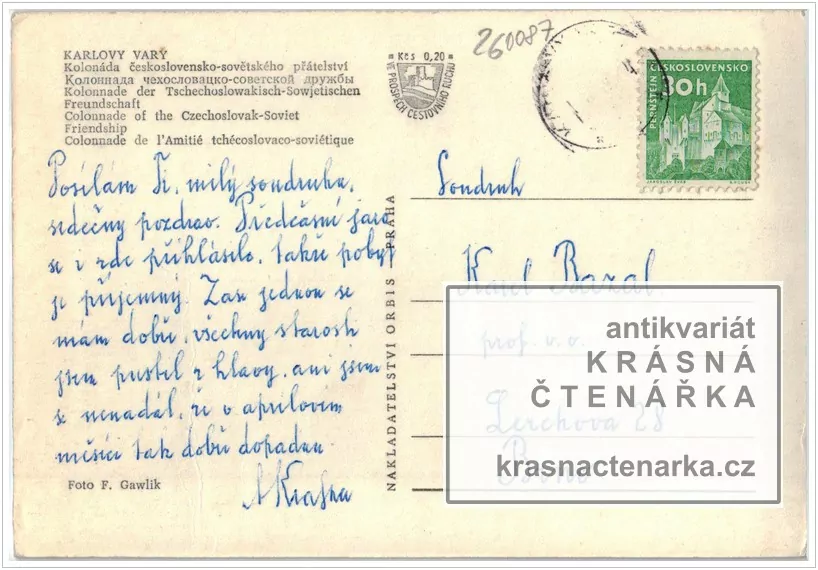 KARLOVY VARY
Kolonáda československo-sovětského přátelství
Колоннада чехословацко-советской дружбы
Kolonnade der Tschechoslowakisch-Sowjetischen
Freundschaft
Colonnade of the Czechoslovak-Soviet
Friendship
Colonnade de l'Amitié tchécoslovaco-soviétique
Kčs 0,20
VE PROSPĚCH CESTOVNÍHO RUCHU
260087
ČESKOSLOVENSKO
PERNŠTEJN
30h
Posílám Ti, milý soudruhu,
srdečný pozdrav. Předčasné jaro
se i zde přihlásilo, takže pobyt
je příjemný. Zase jednou se
mám dobře, všechny starosti
jsem pustil z hlavy, ani jsem
se nenadál, že v aprílovém
měsíci tak dobře dopadnu.
Foto F. Gawlik
NAKLADATELSTVÍ ORBIS - PRAHA
Soudruh
Karel
prof. v. v.
Lerchova 28
Brno
antikvariát
KRÁSNÁ
ČTENÁŘKA
krasnactenarka.cz